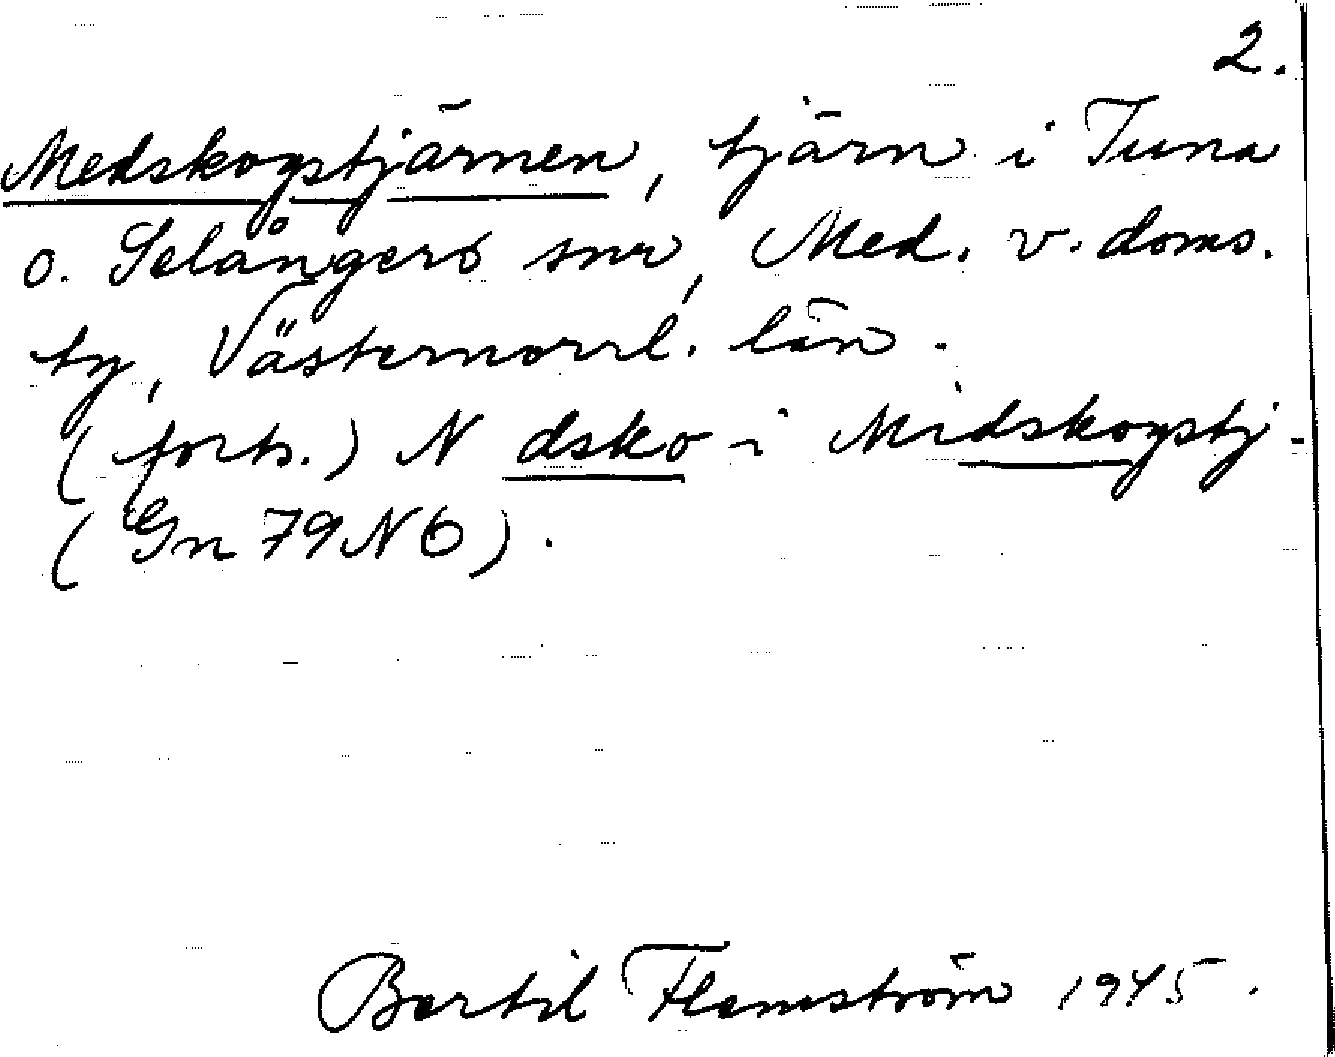 2.
Medskogstjärnen, tjärn i Tuna
o. Selångers snr, Med. v. doms.
ty, Västernorrl. län.
(forts.) N dsko i Midskogstj-
(Gn 79 N 6).
Bertil Flemström 1945.